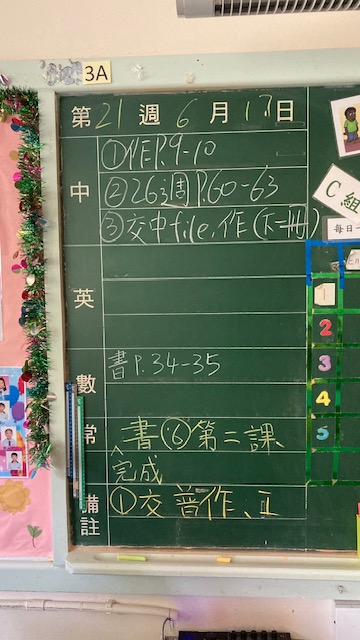 3A
第21週6月17日
中
①作P.9-10
②26週P.60-63
③交中file,作(下一冊)
英
數
書P.34-35
常
書⑥第二課
完成
備註
①交普作、工
C組
每日一
1
2
3
4
5